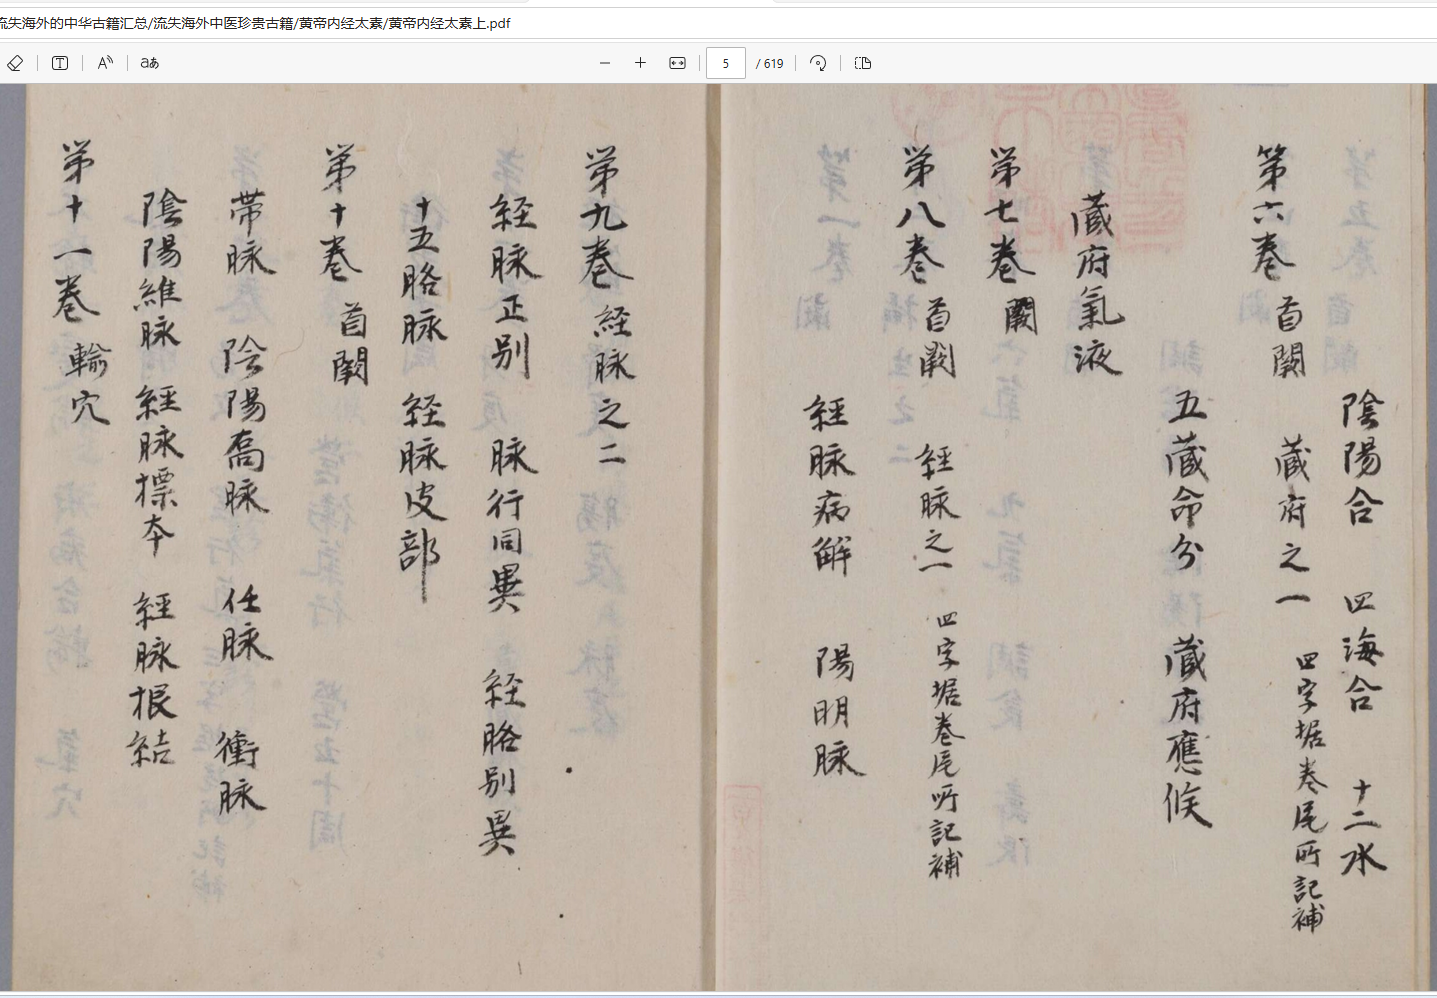 流失海外的中华古籍汇总/流失海外中医珍贵古籍/黄帝内经太素/黄帝内经太素上.pdf
5 / 619
陰陽合　四海合　十二水
第六卷　首闕　藏府之一　四字據卷尾所記補
五藏命分　藏府應候
藏府氣液
第七卷　闕
第八卷　首闕　經脉之一　四字據卷尾所記補
經脉病解　陽明脉
第九卷　經脉之二
經脉正別　脉行同異　經胳別異
十五胳脉　經脉皮部
第十卷　首闕
帶脉　陰陽喬脉　任脉　衝脉
陰陽維脉　經脉摽本　經脉根結
第十一卷　輸穴